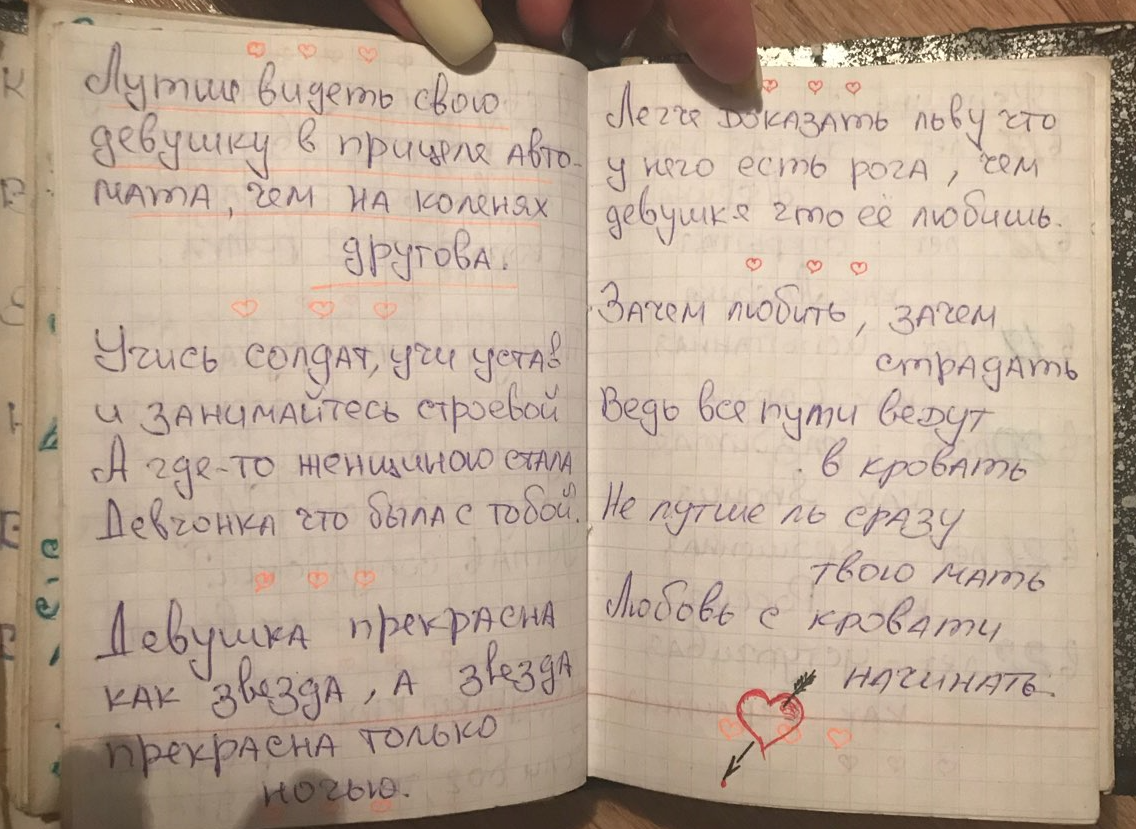 Лутше видеть свою
девушку в прицеле авто-
мата, чем на коленях
другова.
Учись солдат, учи устав
и занимайтесь строевой
А где-то женщиною стала
Девчонка что была с тобой.
Девушка прекрасна
как звезда, а звезда
прекрасна только
ночью.
Легче доказать льву что
у него есть рога, чем
девушке что её любишь.
Зачем любить, зачем
страдать
Ведь все пути ведут
в кровать
Не лутше ль сразу
твою мать
Любовь с кровати
начинать.